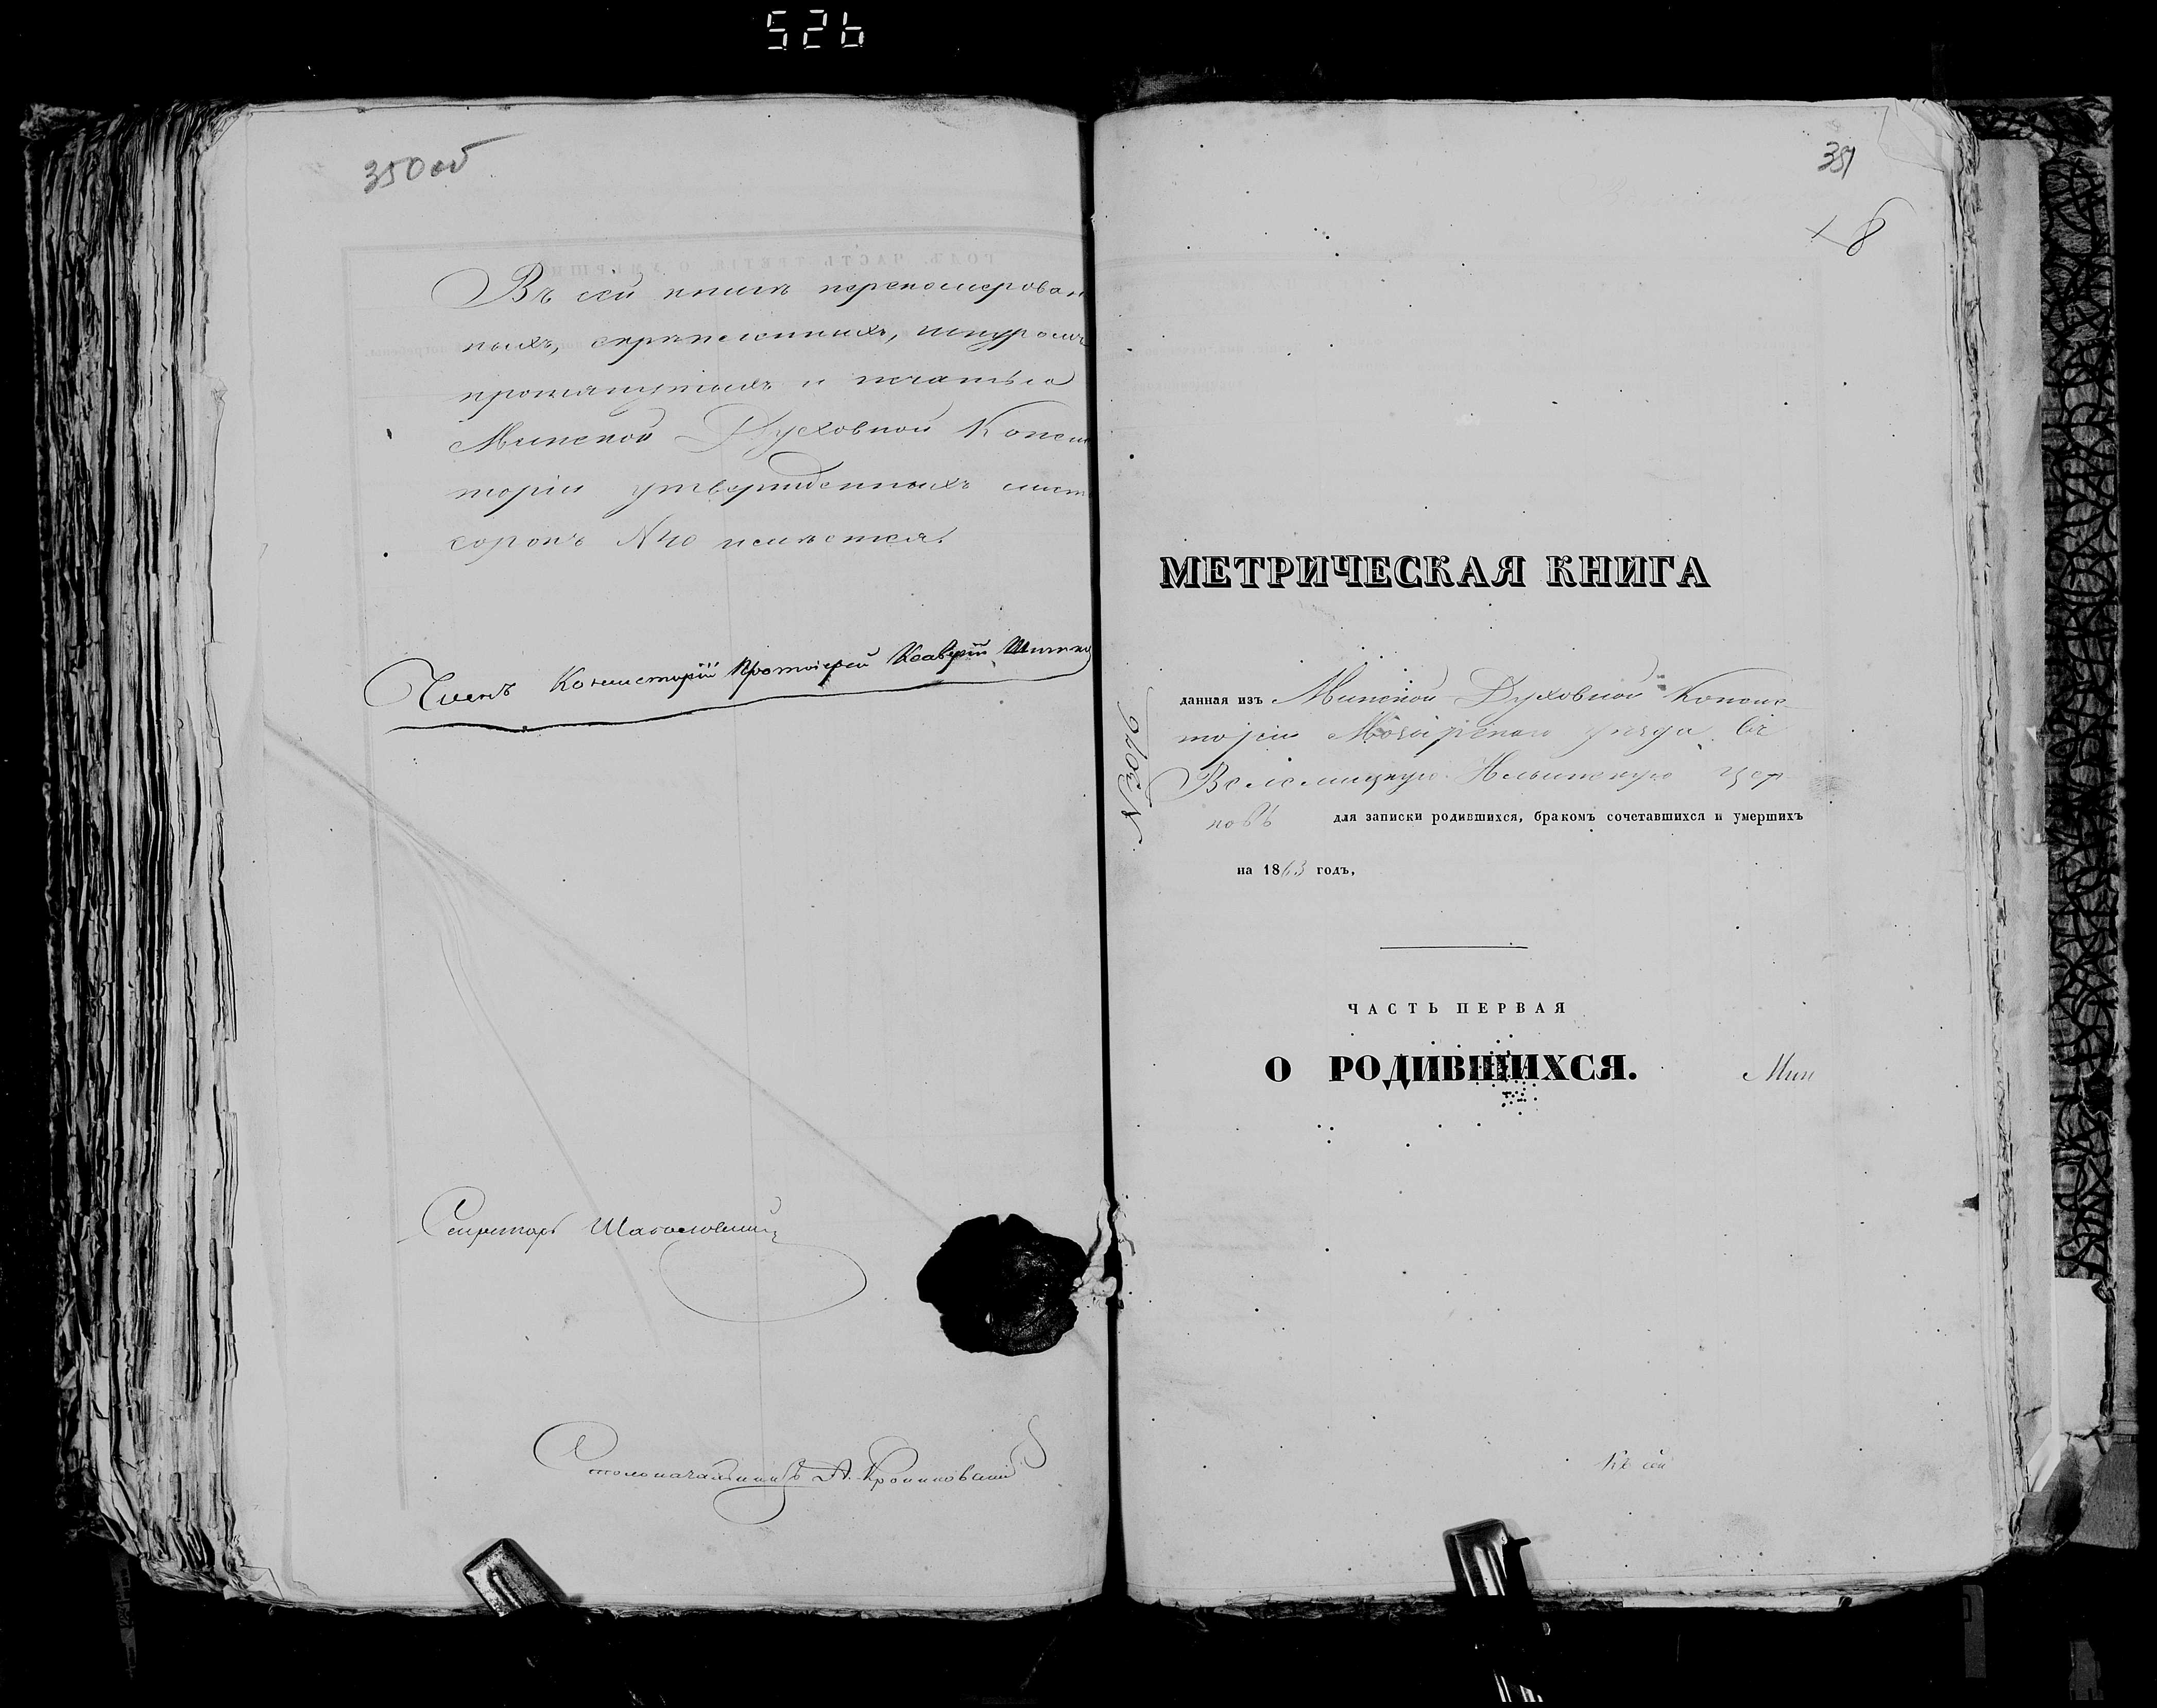 526
350 об
Въ сей книгѣ перенумерован
ныхъ, скрѣпленныхъ, шнуромъ
протянутыхъ и печатью
Минской Духовной Конси
торіи утвержденныхъ лист
сорокъ №40 имѣется.
Членъ Консисторіи Протоіерей Ксаверій
Секретарь
Столоначальникъ А.
351
8
МЕТРИЧЕСКАЯ КНИГА
данная изъ Минской Духовной Консис
торіи Мозырскаго уѣзда въ
Велемицкую Ильинскую цер
ковь для записки родившихся, бракомъ сочетавшихся и умершихъ
на 1863 годъ,
ЧАСТЬ ПЕРВАЯ
О РОДИВШИХСЯ.
Мин
Къ сей